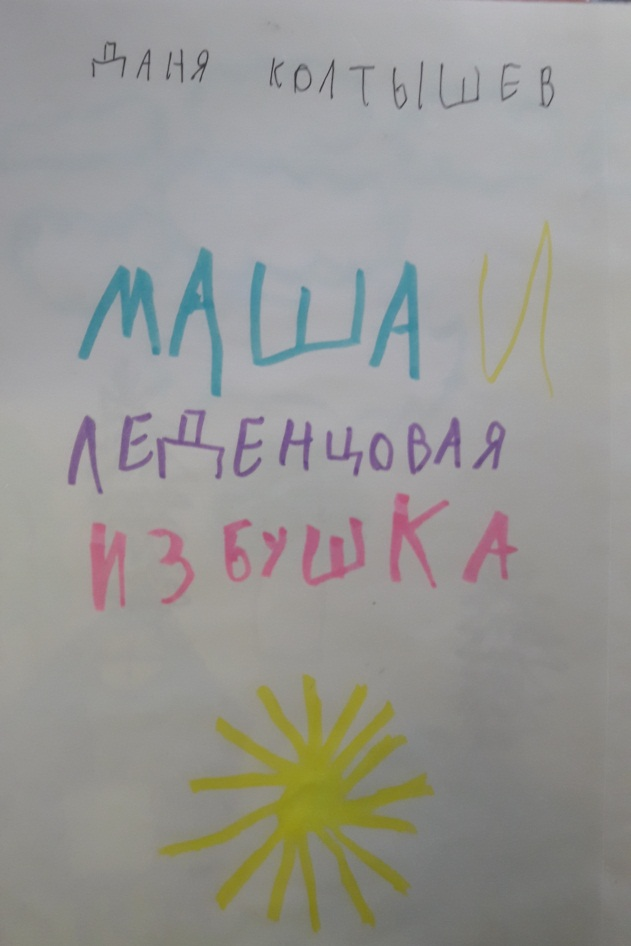 ДАНЯ КОЛТЫШЕВ
МАША И
ЛЕДЕНЦОВАЯ
ИЗБУШКА